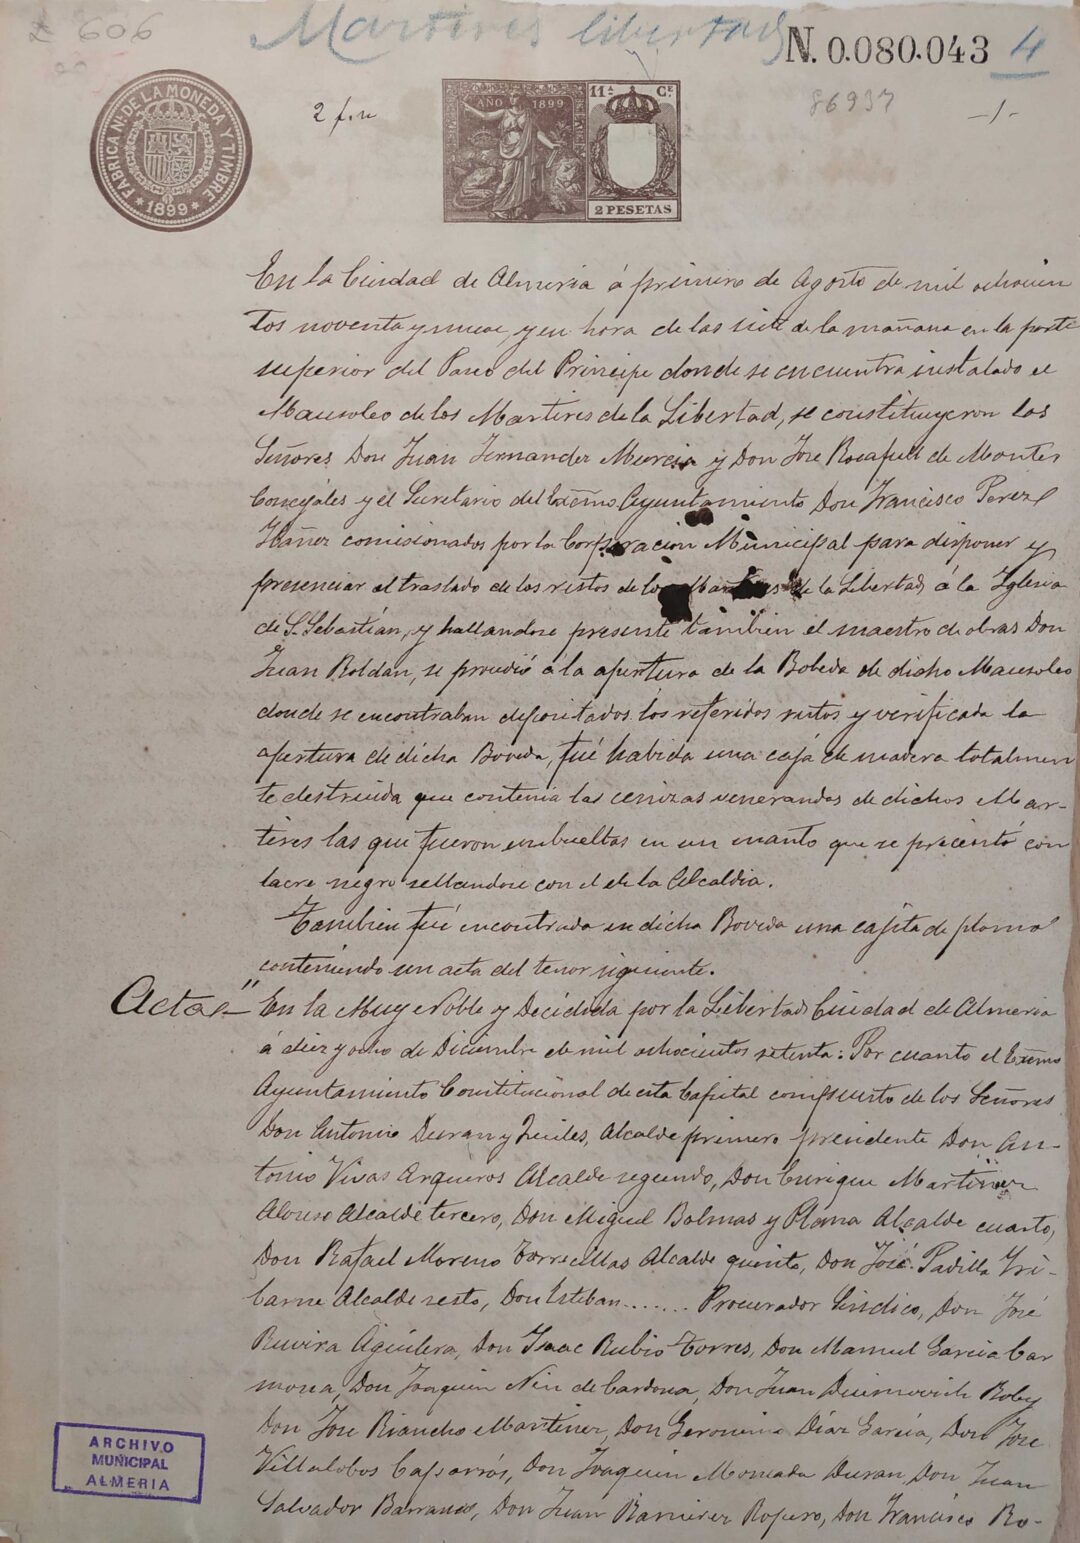 L 606
Martires libertad
N. 0.080.043
4
86937
-1-
FABRICA NL. DE LA MONEDA Y TIMBRE
* 1899 *
AÑO 1899
11ª Cᴱ
2 PESETAS
En la Ciudad de Almeria á primero de Agosto de mil ochocien
tos noventa y nueve, y en hora de las siete de la mañana en la parte
superior del Paseo del Principe donde se encuentra instalado el
Mausoleo de los Martires de la Libertad, se constituyeron los
Señores Don Juan Fernandez Murcia y Don Jose Rocafull de Montes
Concejáles y el Secretario del Excmo Ayuntamiento Don Francisco Perez
Ibañez comisionados por la Corporacion Municipal para disponer y
presenciar el traslado de los restos de los Martires de la Libertad á la Iglesia
de S. Sebastián, y hallandose presente tambien el maestro de obras Don
Juan Roldán, se procedió á la apertura de la Bobeda de dicho Mausoleo
donde se encontraban depositados los referidos restos y verificada la
apertura de dicha Boveda, fué habida una caja de madera totalmen
te destruida que contenia las cenizas venerandas de dichos Mar-
tires las que fueron embueltas en un manto que se precintó con
lacre negro sellandose con el de la Alcaldia.
Tambien fué encontrada en dicha Boveda una cajita de plomo
conteniendo un acta del tenor siguiente.
Acta=" En la Muy Noble y Decidida por la Libertad Ciudad de Almeria
á diez y ocho de Diciembre de mil ochocientos setenta: Por cuanto el Excmo
Ayuntamiento Constitucional de esta Capital compuesto de los Señores
Don Antonio Duran y Quiles, Alcalde primero presidente Don An-
tonio Vivas Arqueros Alcalde segundo, Don Enrique Martinez
Alonso Alcalde tercero, Don Miguel Bolmas y Plana Alcalde cuarto,
Don Rafael Moreno Torrecillas Alcalde quinto, Don José Padilla Iri-
barne Alcalde sesto, Don Esteban ....... Procurador Sindico, Don José
Ruvira Aguilera, Don Isaac Rubio Torres, Don Manuel Garcia Car
mona, Don Joaquin Nin de Cardona, Don Juan Roby
Don Jose Riancho Martinez, Don Geronimo Díaz García, Don Jose
Villalobos Don Joaquin Moncada Duran, Don Juan
Salvador Barranco, Don Juan Ramirez Ropero, Don Francisco Ro-
ARCHIVO
MUNICIPAL
ALMERIA